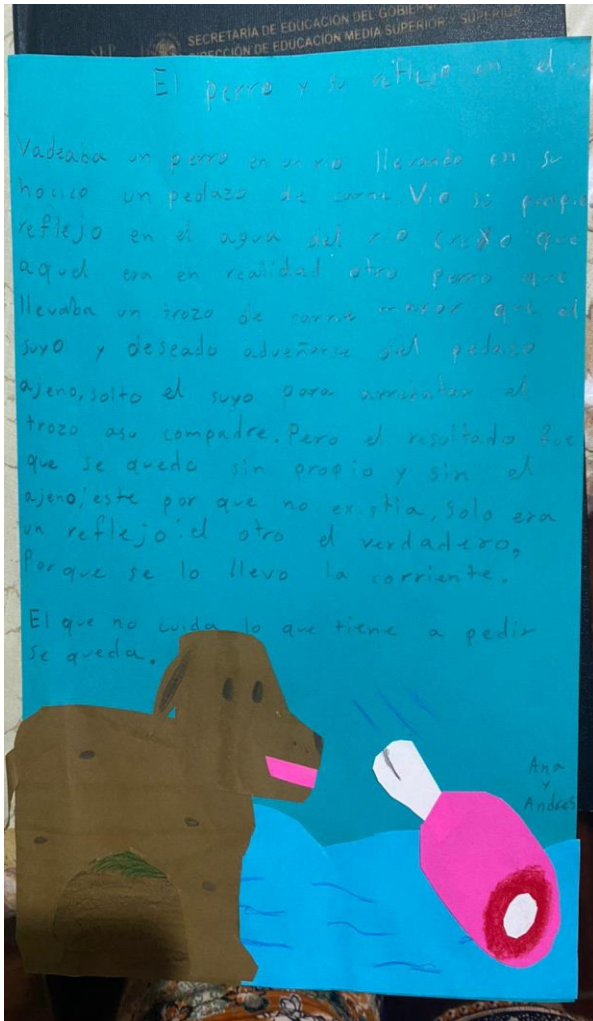 SECRETARÍA DE EDUCACIÓN DEL GOBIER
DIRECCIÓN DE EDUCACIÓN MEDIA SUPERIOR Y SUPERIOR
El perro y su reflejo en el
Vadeaba un perro en un rio llevando en su
hocico un pedazo de carne. Vio su propio
reflejo en el agua del rio creyo que
aquel era en realidad otro perro que
llevaba un trozo de carne mayor que el
suyo y deseado adueñarse del pedazo
ajeno, solto el suyo para arrebatar el
trozo asu compadre. Pero el resultado fue
que se quedo sin propio y sin el
ajeno: este por que no existia, solo era
un reflejo: el otro el verdadero,
Porque se lo llevo la corriente.
El que no cuida lo que tiene a pedir
se queda.
Ana
y
Andres